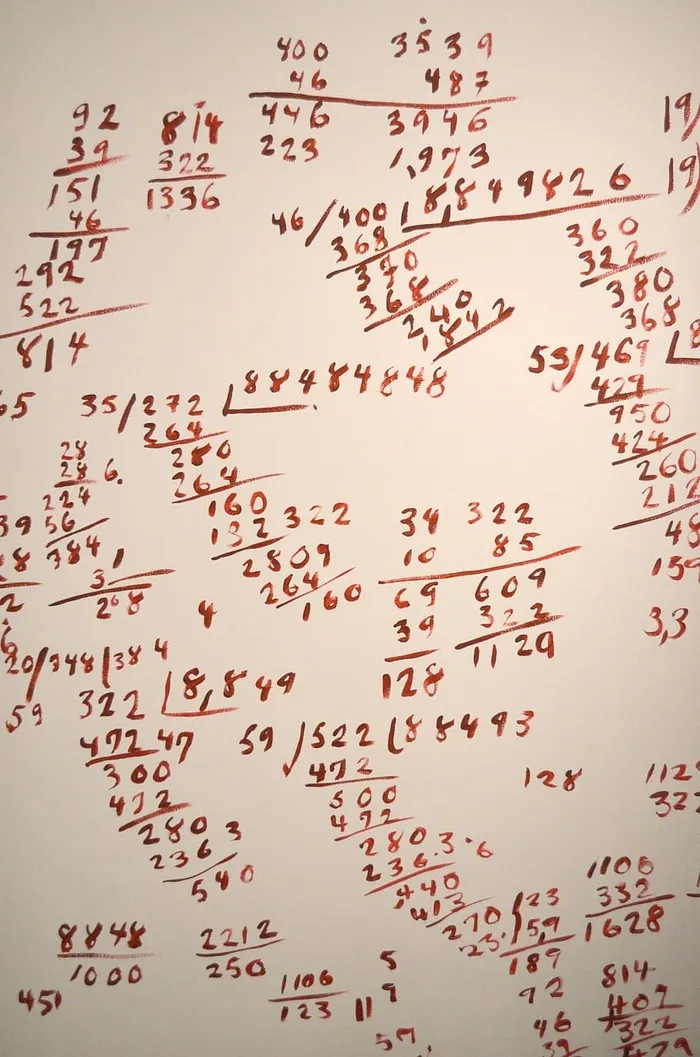 400 3539
46 487
446 3946
223 1,973
92
39
151
46
197
292
522
814
814
322
1336
19)
19)
46/400 1 8,849826
368
370
368
240
1842
360
322
380
368
53/469
429
950
424
260
212
48
159
3,3
65
35/272 88484848
264
280
264
160
132 322
2809
264
160
28
28 6.
224
56
384
1
31
268
4
34 322
10 85
69 609
39 322
128 1129
20/348/384
59 322 8,849
472 47
300
472
280 3
2363
540
59 522 88493
472
500
472
280 3.6
236.
440
413
270
23.
23
59
189
128
1106
332
1628
8848
1000
451
2212
250
1106
123
11
5
9
57
92
46
39
814
407
322
429